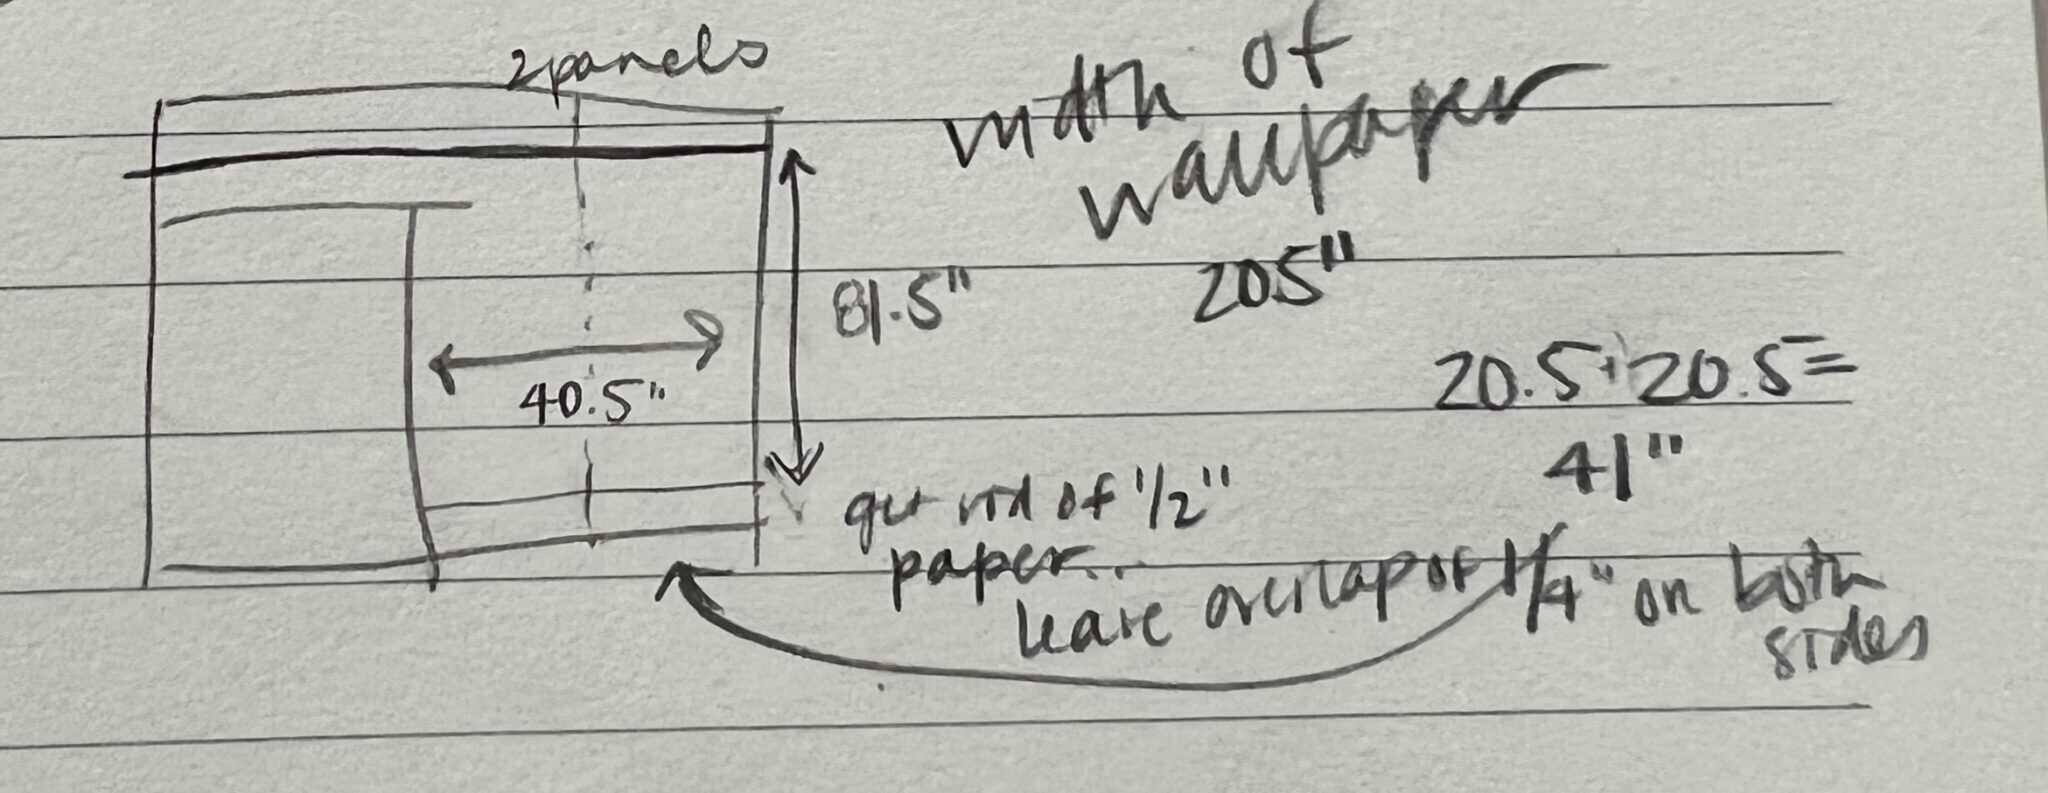 2 panels
width of
wallpaper
205"
81.5"
20.5+20.5=
41"
40.5"
get rid of 1/2"
paper...
leave overlap of 1/4" on both
sides